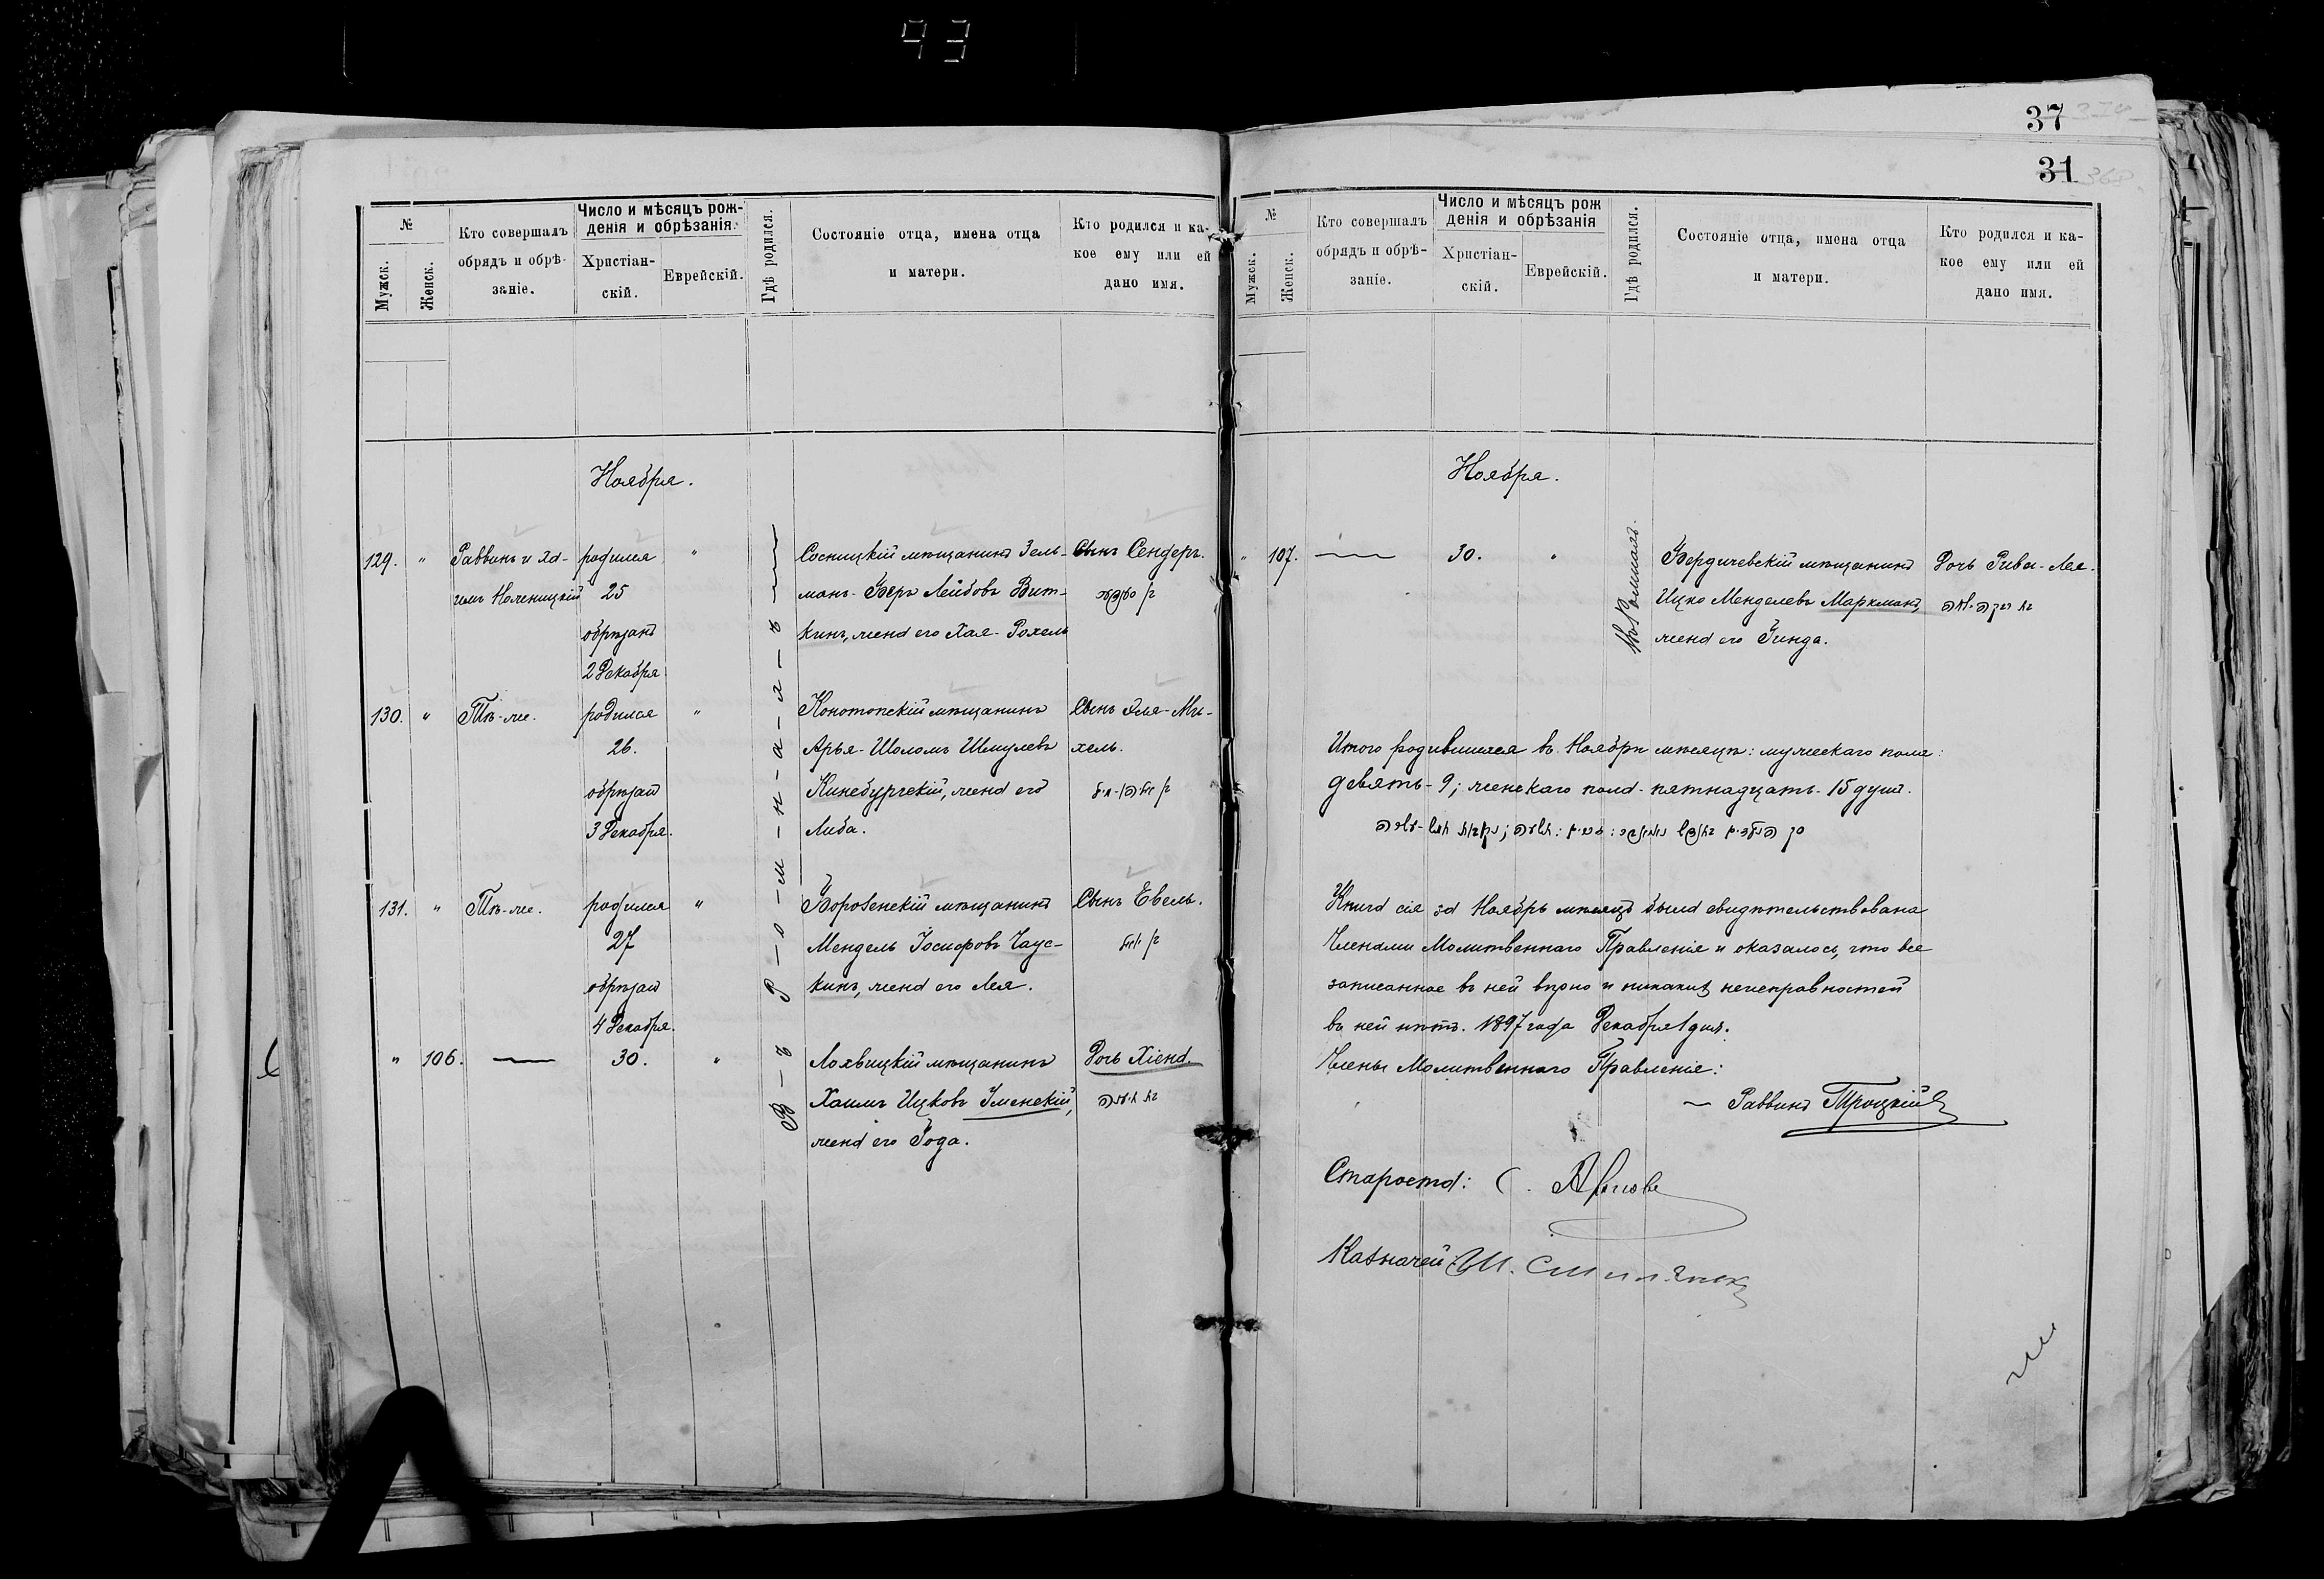 93
37
31
368
№
Мужск.
Женск.
Кто совершалъ
обрядъ и обрѣ-
заніе.
Число и мѣсяцъ рож-
денія и обрѣзанія.
Христіан-
скій.
Еврейскій.
Гдѣ родился.
Состояніе отца, имена отца
и матери.
Кто родился и ка-
кое ему или ей
дано имя.
Ноября.
129. " Раввинъ и
родился "
25
обрѣзанъ
2 Декабря
Сосницкій мѣщанинъ Зель-
манъ-Беръ Лейбовъ Вит-
кинъ, жена его Хая-Рохель
Сынъ Сендеръ.
130. " Тѣ-же.
родился "
26.
обрѣзанъ
3 Декабря.
Конотопскій мѣщанинъ
Арья-Шоломъ Шмулевъ
Кинебургскій, жена его
Либа.
Сынъ Эля-Ми-
хель.
131. " Тѣ-же.
родился "
27
обрѣзанъ
4 Декабря.
Борозенскій мѣщанинъ
Мендель Іосифовъ Чаус-
кинъ, жена его Лея.
Сынъ Евель.
" 106. — 30. "
Лохвицкій мѣщанинъ
Хаимъ Ицковъ Уменскій,
жена его Года.
Дочь Хіена.
В-ъ Р-о-м-н-а-л-ъ
№
Мужск.
Женск.
Кто совершалъ
обрядъ и обрѣ-
заніе.
Число и мѣсяцъ рож
денія и обрѣзанія
Христіан-
скій.
Еврейскій.
Гдѣ родился.
Состояніе отца, имена отца
и матери.
Кто родился и ка-
кое ему или ей
дано имя.
Ноября.
" 107. — 30. "
Бердичевскій мѣщанинъ
Ицко Менделевъ Маркманъ,
жена его Гинда.
Дочь Рива-Лея.
דת ריבה-לאה
Итого родившихся въ Ноябрѣ мѣсяцѣ: мужескаго пола:
девять-9; женскаго пола-пятнадцать-15 душъ.
Книга сія за Ноябрь мѣсяцъ была свидѣтельствована
Членами Молитвеннаго Правленія и оказалось, что все
записанное въ ней вѣрно и никакихъ неисправностей
въ ней нѣтъ. 1897 года Декабря 1 дня.
Члены Молитвеннаго Правленія:
Раввинъ Троцкій
Староста:
Казначей